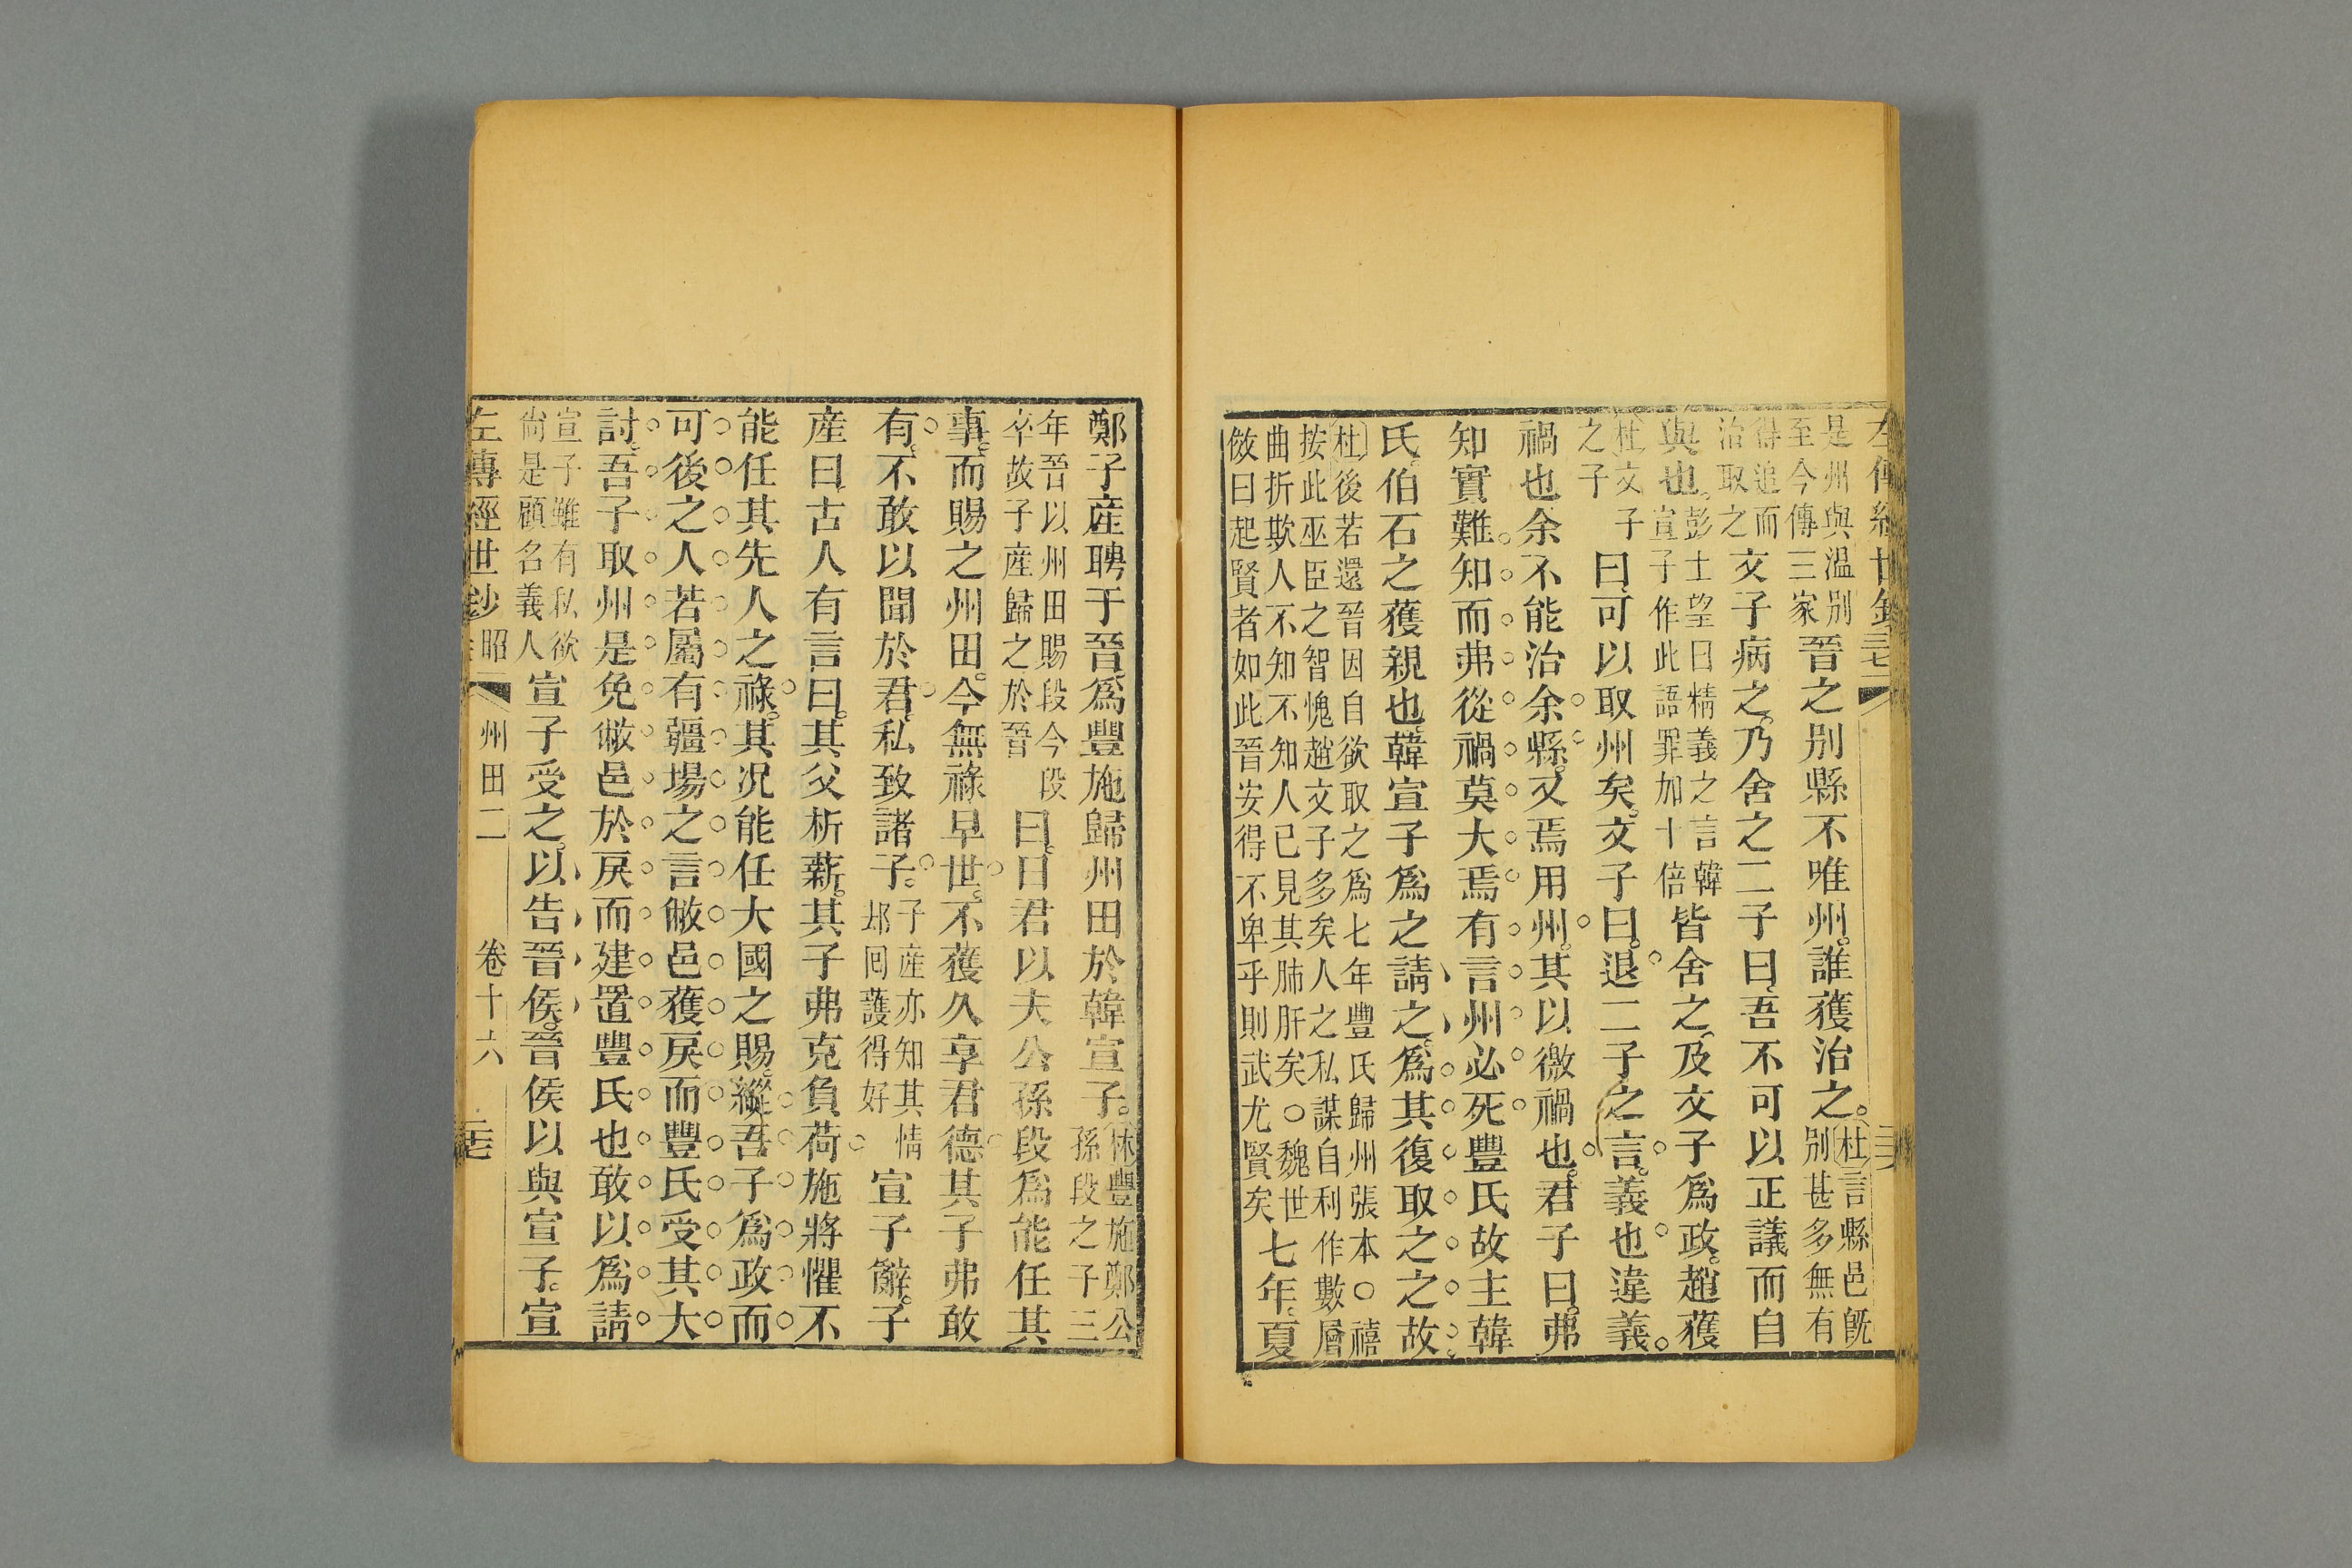 是州與溫别
至今傳三家
晉之别縣不唯州。誰獲治之。
杜言縣邑旣
别甚多無有
得追而
治取之
文子病之。乃舍之二子曰、吾不可以正議而自
與也。
彭士望曰精義之言韓
宣子作此語罪加十倍
皆舍之、及文子爲政。趙獲
杜文子
之子
曰、可以取州矣。文子曰。退二子之言。義也違義。
禍也余不能治余縣。又焉用州。其以徼禍也。君子曰。弗
知實難知而弗從禍莫大焉有言州必死豐氏故主韓
氏。伯石之獲親也。韓宣子爲之請之。爲其復取之之故
杜後若還晉因自欲取之爲七年豐氏歸州張本〇禧
按此巫臣之智愧趙文子多矣人之私謀自利作數層
曲折欺人不知不知人已見其肺肝矣〇魏世
傚曰起賢者如此晉安得不卑乎則武尤賢矣
七年。夏
鄭子産聘于晉。爲豐施歸州田於韓宣子。
林豐施鄭公
孫段之子三
年晉以州田賜段今段
卒故子産歸之於晉
曰。日君以夫公孫段爲能任其
事。而賜之州田。今無祿早世。不獲久享君德其子弗敢
有。不敢以聞於君。私致諸子。
子産亦知其情
却囘護得好
宣子辭。子
産曰古人有言曰。其父析薪。其子弗克負荷施將懼不
能任其先人之祿。其况能任大國之賜。縱吾子爲政而
可後之人若屬有疆場之言敝邑獲戾而豐氏受其大
討。吾子取州是免敝邑於戾而建置豐氏也敢以爲請
宣子雖有私欲
尙是顧名義人
宣子受之。以告晉侯。晉侯以與宣子。宣
左傳經世鈔 昭 州田二 卷十六